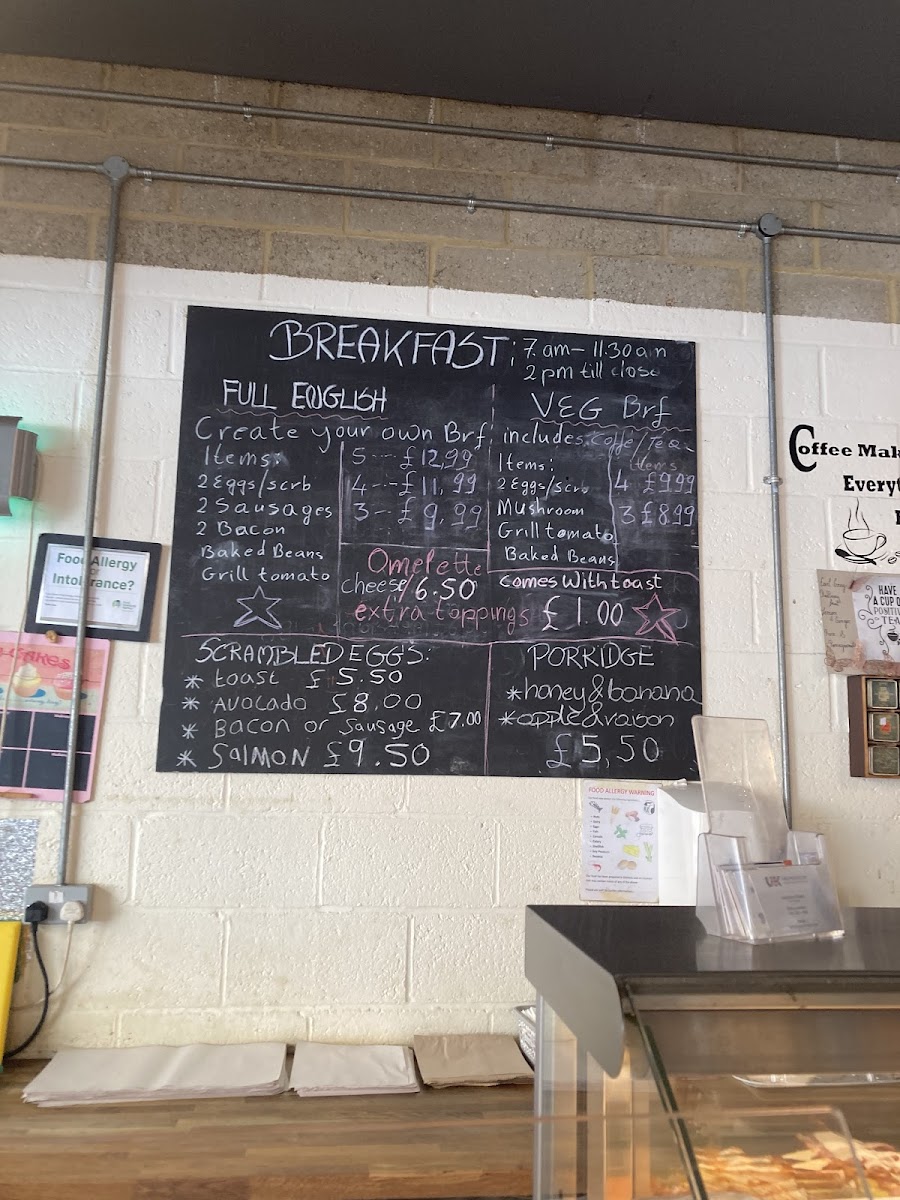 BREAKFAST; 7am – 11.30am
2pm till close
FULL ENGLISH
Create your own Brf
Items:
2 Eggs/scrb
2 Sausages
2 Bacon
Baked Beans
Grill tomato
5 -- £12,99
4 -- £11,99
3 -- £9,99
Omelette
cheese/6.50
extra toppings £1.00
VEG Brf
includes: coffe/Tea
Items:
2 Eggs/scrb
Mushroom
Grill tomato
Baked Beans
items
4 £9.99
3 £8.99
comes with toast
SCRAMBLED EGGS:
* toast £5.50
* AVOCADO £8.00
* Bacon or Sausage £7.00
* SalMON £9.50
PORRIDGE
* honey & banana
* apple & raison
£5,50
Food Allergy
Intolerance?
CAKES
Coffee Mak
Everyt
HAVE
A CUP O
POSITIV
TEA
FOOD ALLERGY WARNING